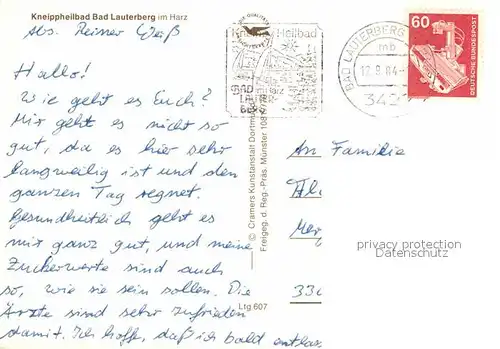 Kneippheilbad Bad Lauterberg im Harz
Abs. Reiner Weiß
Hallo!
Wie geht es Euch?
Mir geht es nicht so
gut, da es hier sehr
langweilig ist und den
ganzen Tag regnet.
Gesundheitlich geht es
mir ganz gut, und meine
Zuckerwerte sind auch
so, wie sie sein sollen. Die
Ärzte sind sehr zufrieden
damit. Ich hoffe, daß ich bald entlas
© Cramers Kunstanstalt Dortmund
Freigeg. d. Reg.-Präs. Münster
Ltg 607
Heilbad
BAD im Harz
LAUTER-
BERG
BAD LAUTERBERG
mb
12.9.84
60
DEUTSCHE BUNDESPOST
An Familie
privacy protection
Datenschutz